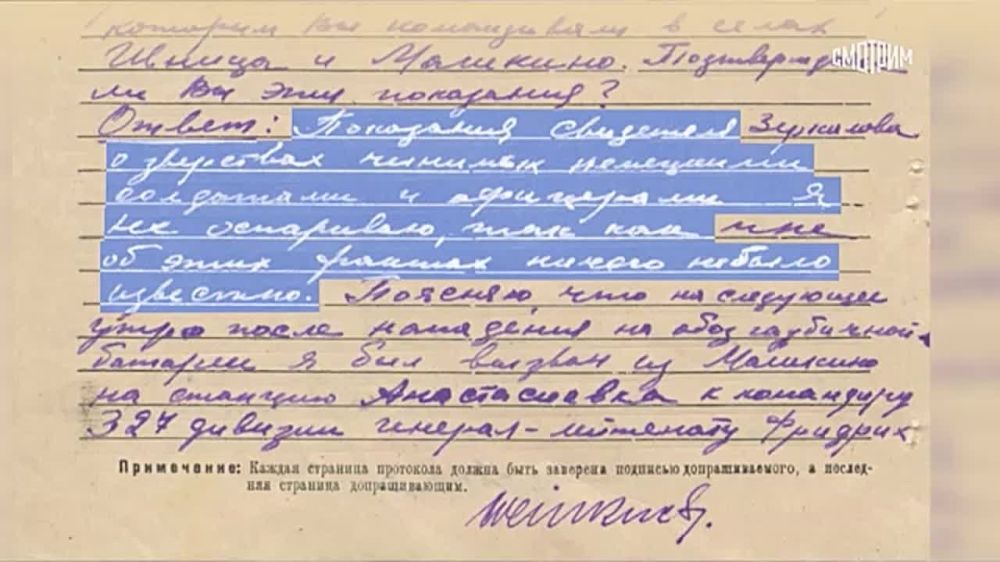 которыми Вы командивали в селах
СМОТРИМ
Ивница и Машкино. Подтверждаете
ли Вы эти показания?
Ответ: Показания свидетеля Зуркалова
о зверствах чинимых немецкими
солдатами и офицерами я
не оспариваю, так как мне
об этих фактах ничего небыло
известно. Поясняю, что на следующее
утро после нападения на обоз гаубичной
батареи я был вызван из Машкино
на станцию Анастасиевка к командиру
327 дивизии генерал-лейтенату Фридрих
Примечание: Каждая страница протокола должна быть заверена подписью допрашиваемого, а послед-
няя страница допрашивающим.